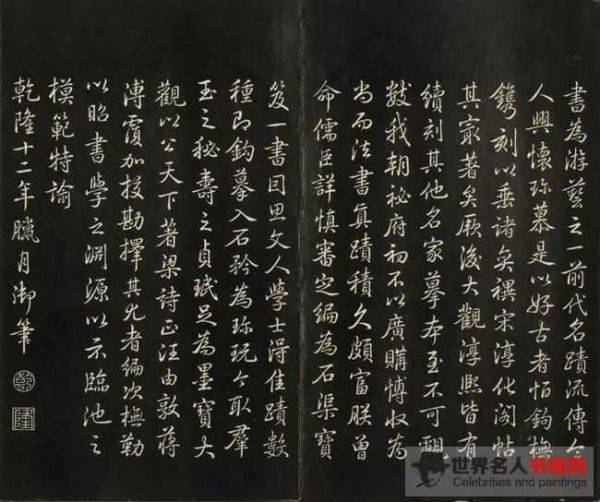 書為游藝之一前代名蹟流傳令
人興懷珍慕是以好古者恒鈎橅
鐫刻以垂諸奕禩宋淳化閣帖
其最著矣厥後大觀淳熙皆有
續刻其他名家摹本至不可覼
縷我朝祕府初不以廣購博收為
尚而法書真蹟積久頗富朕曾
命儒臣詳慎審定編為石渠寶
笈一書因思文人學士得佳蹟數
種即鈎摹入石矜為珍玩今取羣
玉之秘壽之貞珉足為墨寶大
觀以公天下著梁詩正汪由敦蔣
溥覆加校勘擇其尤者編次橅勒
以昭書學之淵源以示臨池之
模範特諭
乾隆十二年臘月御筆
乾
隆
世界名人书画网
Celebrities and paintings